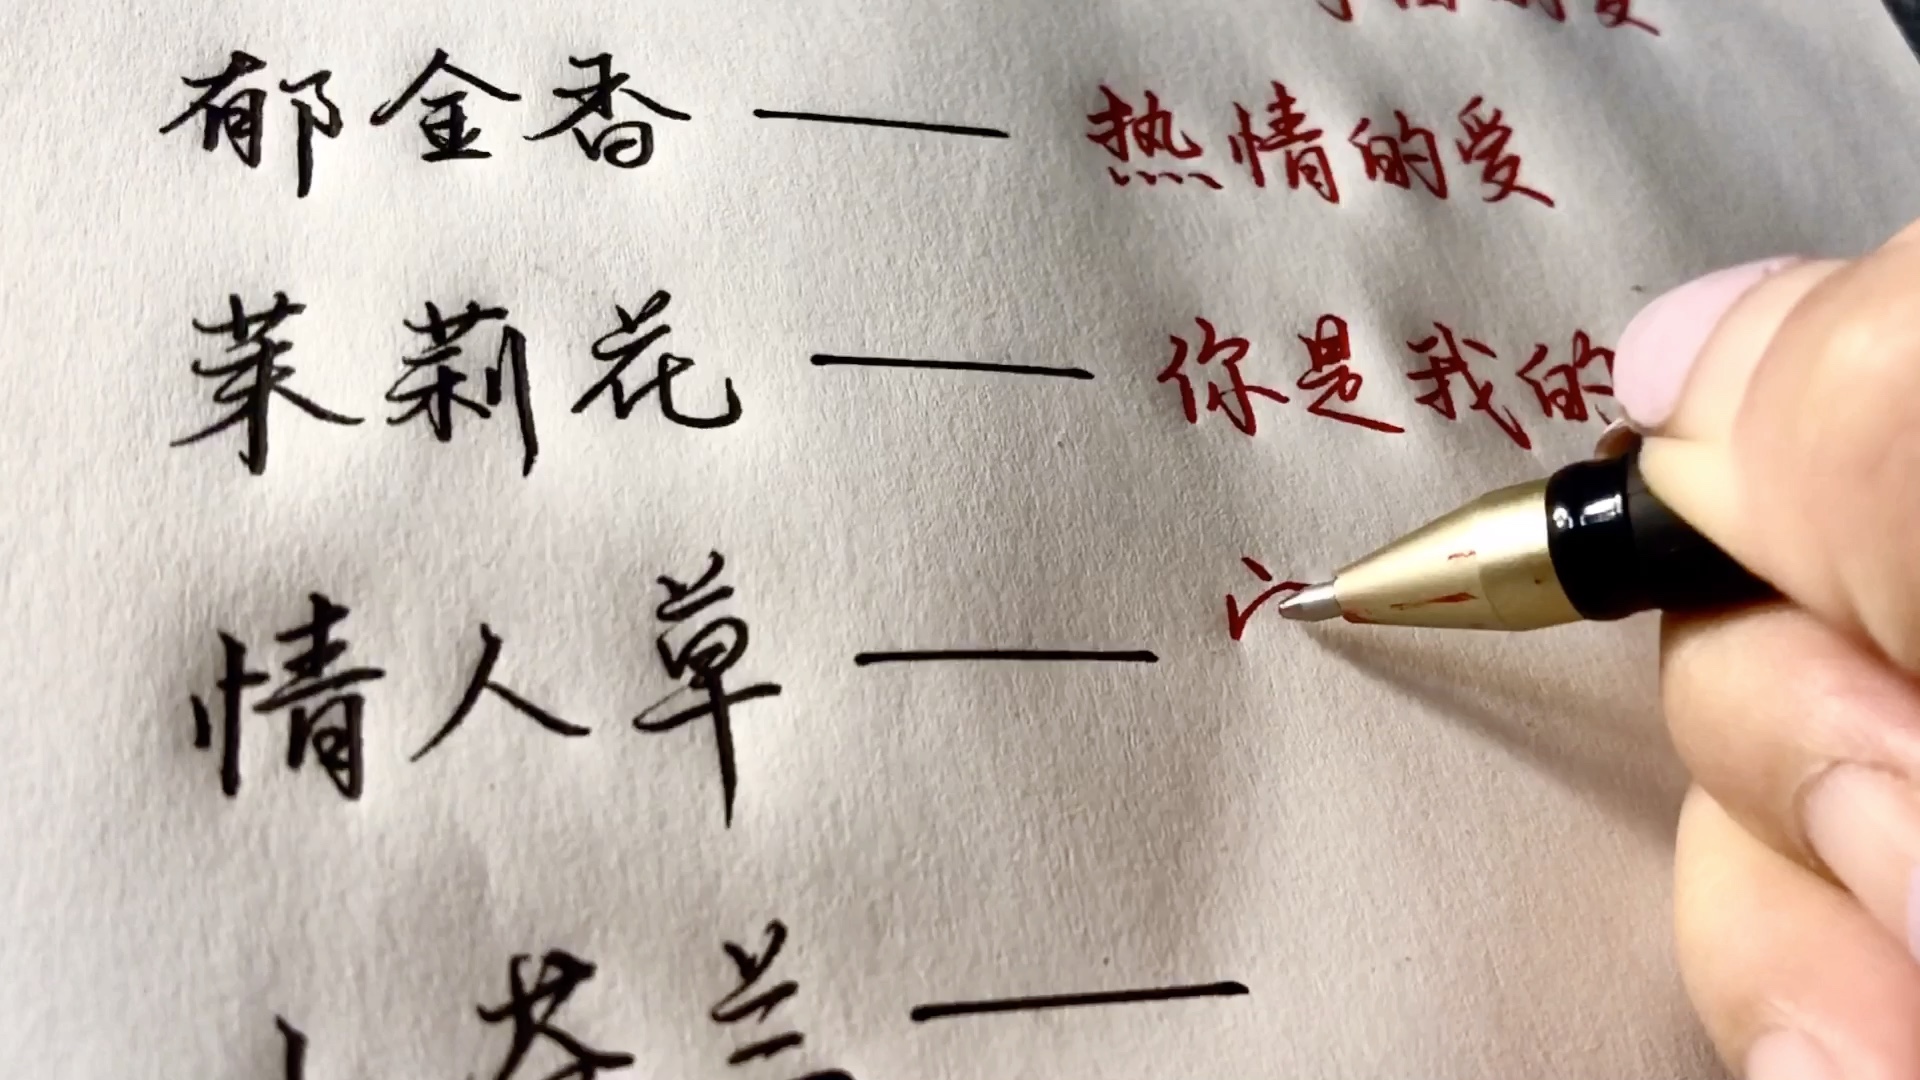 的爱
郁金香——热情的爱
茉莉花——你是我的
情人草——
兰——